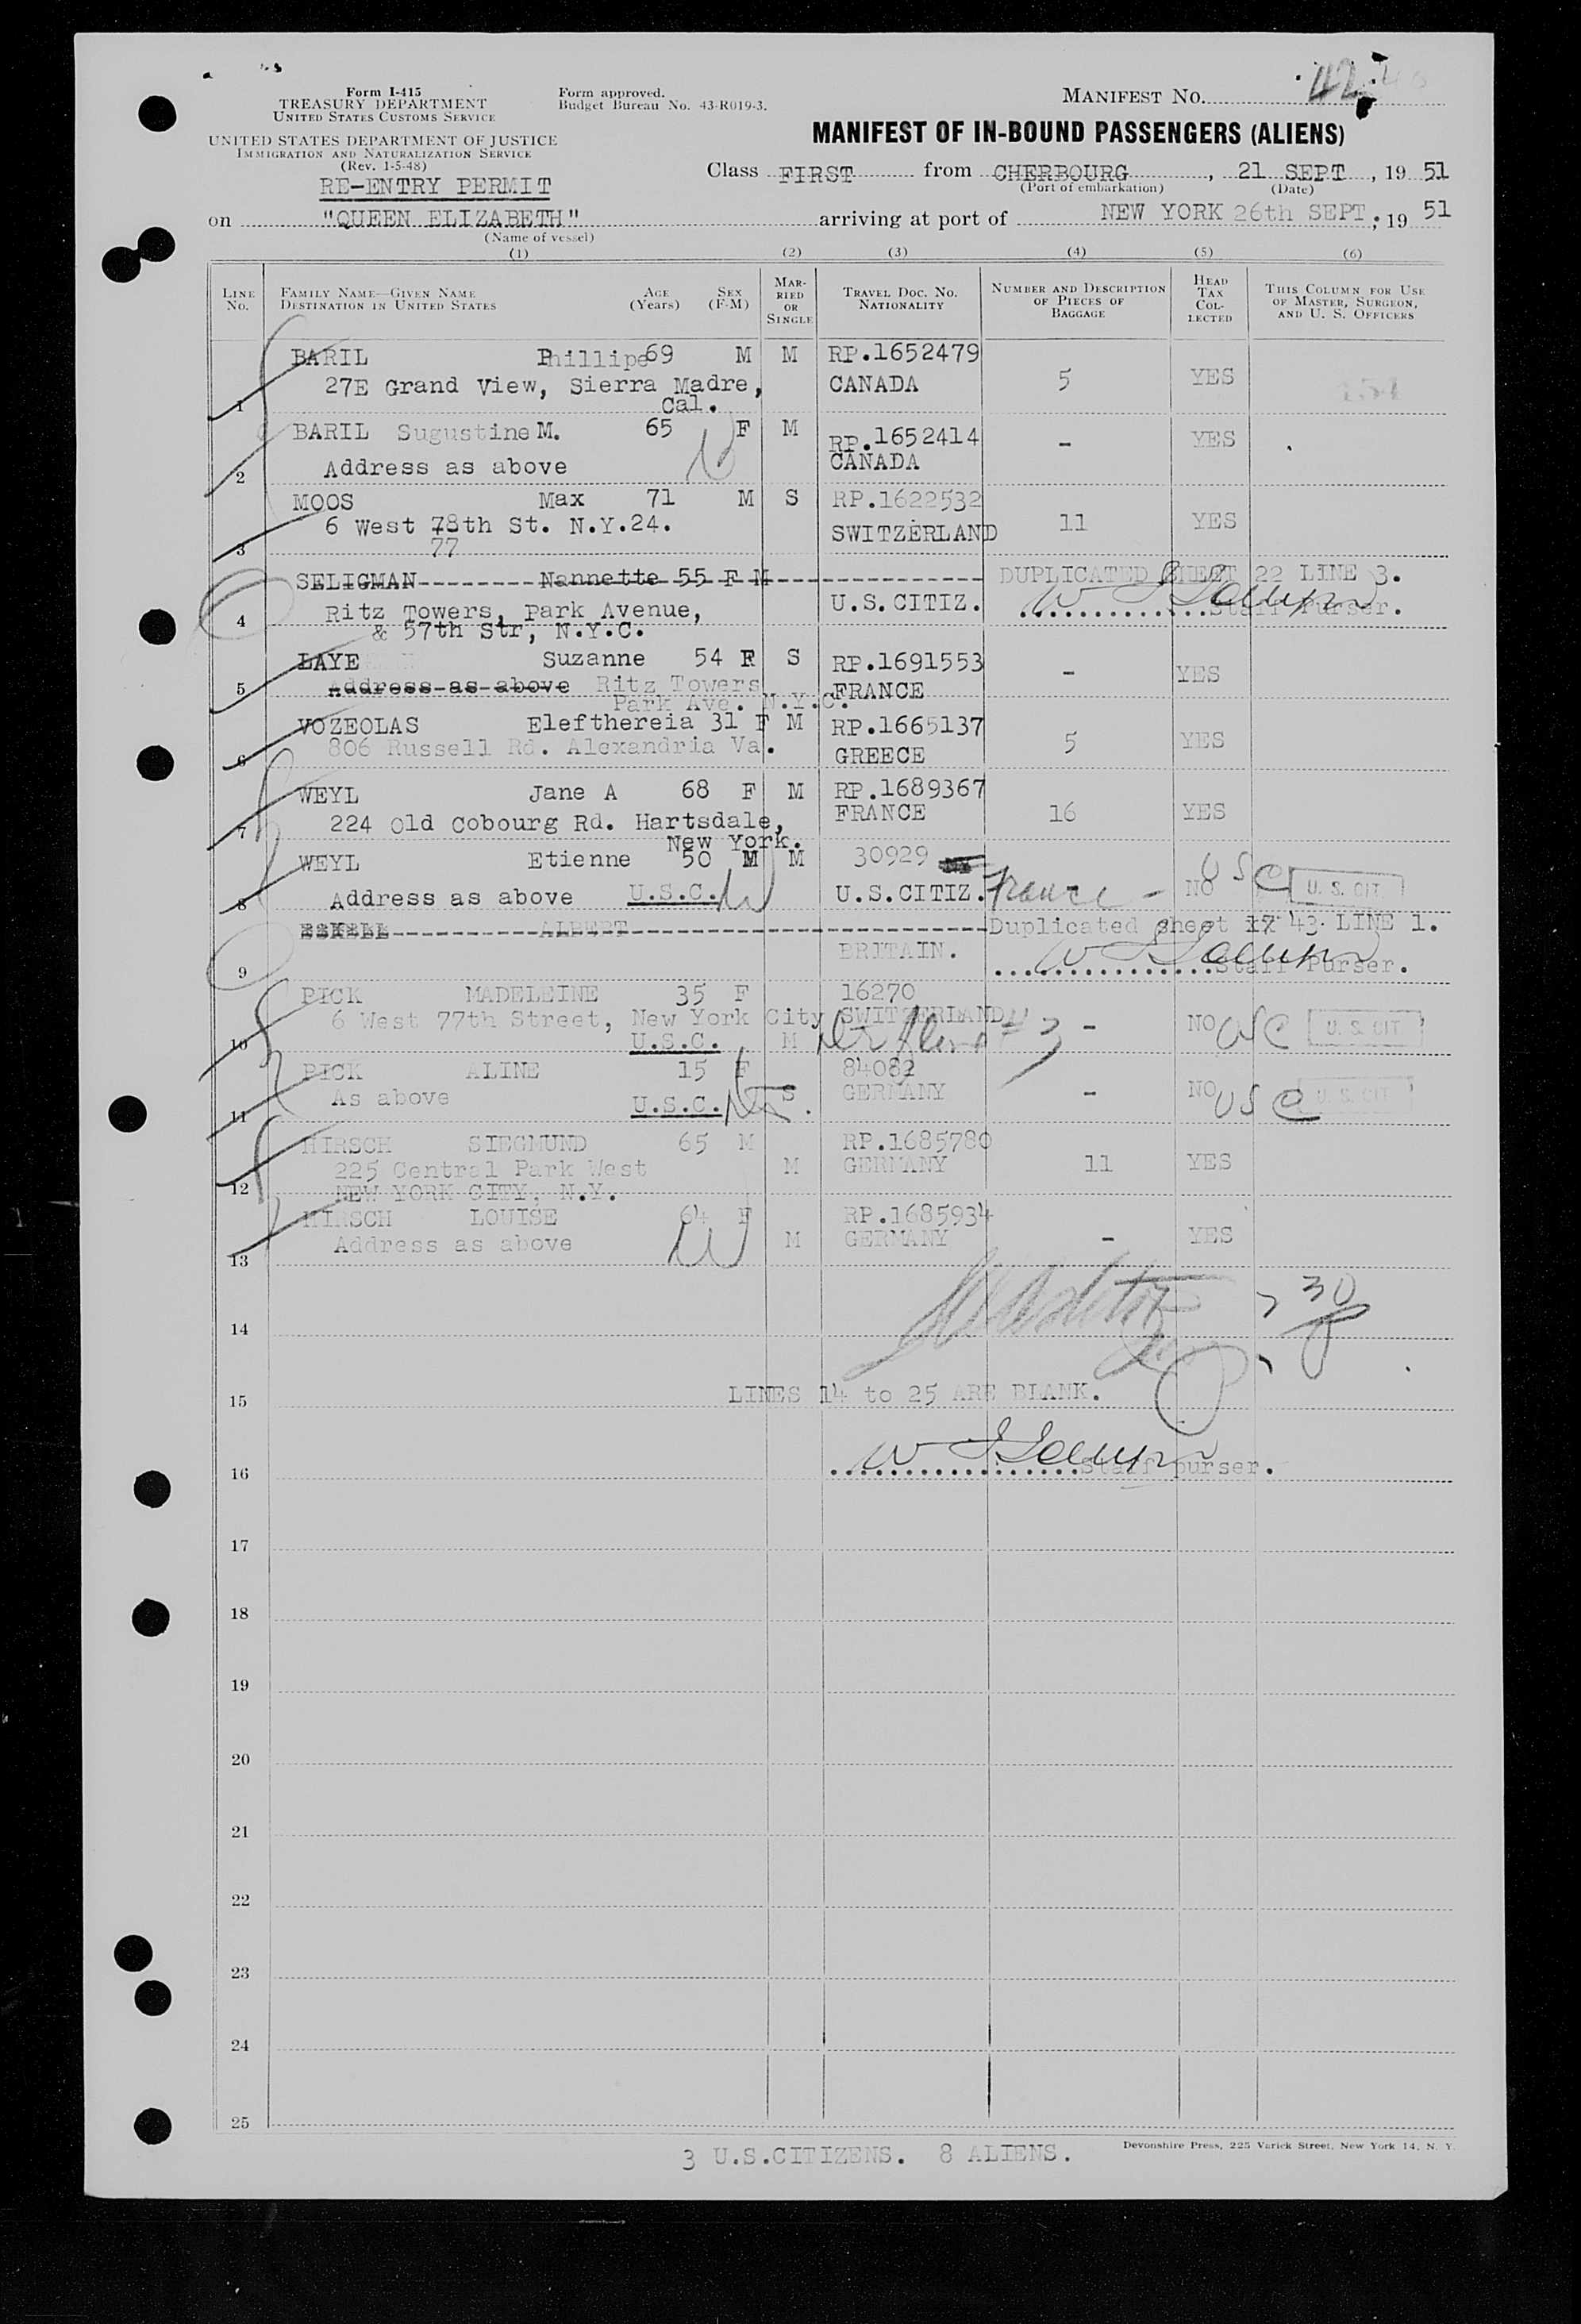 Form I-415
TREASURY DEPARTMENT
UNITED STATES CUSTOMS SERVICE
UNITED STATES DEPARTMENT OF JUSTICE
IMMIGRATION AND NATURALIZATION SERVICE
(Rev. 1-5-48)
RE-ENTRY PERMIT
Form approved.
Budget Bureau No. 43-R019-3.
MANIFEST NO. 42
MANIFEST OF IN-BOUND PASSENGERS (ALIENS)
Class FIRST from CHERBOURG, 21 SEPT, 19 51
(Port of embarkation) (Date)
on "QUEEN ELIZABETH" arriving at port of NEW YORK 26th SEPT, 19 51
(Name of vessel)
(1) (2) (3) (4) (5) (6)
LINE NO. FAMILY NAME—GIVEN NAME DESTINATION IN UNITED STATES AGE (Years) SEX (F-M) MARRIED OR SINGLE TRAVEL DOC. NO. NATIONALITY NUMBER AND DESCRIPTION OF PIECES OF BAGGAGE HEAD TAX COLLECTED THIS COLUMN FOR USE OF MASTER, SURGEON, AND U. S. OFFICERS
BARIL Phillipe 69 M M RP.1652479
1 27E Grand View, Sierra Madre, CANADA 5 YES
Cal.
BARIL Sugustine M. 65 F M RP.1652414 - YES
2 Address as above CANADA
MOOS Max 71 M S RP.1622532
3 6 West 78th St. N.Y.24. SWITZERLAND 11 YES
77
SELIGMAN---------Nannette 55 F M--------------- DUPLICATED SHEET 22 LINE 3.
4 Ritz Towers, Park Avenue, U.S.CITIZ. Staff Purser.
& 57th Str, N.Y.C.
LAYE Suzanne 54 F S RP.1691553 - YES
5 Address as above Ritz Towers FRANCE
Park Ave. N.Y.C.
VOZEOLAS Elefthereia 31 F M RP.1665137
6 806 Russell Rd. Alexandria Va. GREECE 5 YES
WEYL Jane A 68 F M RP.1689367
7 224 Old Cobourg Rd. Hartsdale, FRANCE 16 YES
New York.
WEYL Etienne 50 M M 30929 USC
8 Address as above U.S.C. U.S.CITIZ. France - NO U. S. CIT
ESKELL---------ALBERT---------------Duplicated sheet 17 43 LINE 1.
9 BRITAIN. Staff Purser.
PICK MADELEINE 35 F 16270
10 6 West 77th Street, New York City SWITZERLAND - NO USC U. S. CIT
U.S.C. M
PICK ALINE 15 F 84082
11 As above S GERMANY - NO USC U. S. CIT
U.S.C.
HIRSCH SIEGMUND 65 M RP.1685780
12 225 Central Park West M GERMANY 11 YES
NEW YORK CITY, N.Y.
HIRSCH LOUISE 64 F RP.1685934
13 Address as above M GERMANY - YES
14 30
15 LINES 14 to 25 ARE BLANK.
16 Staff purser.
17
18
19
20
21
22
23
24
25
3 U.S.CITIZENS. 8 ALIENS.
Devonshire Press, 225 Varick Street, New York 14, N. Y.